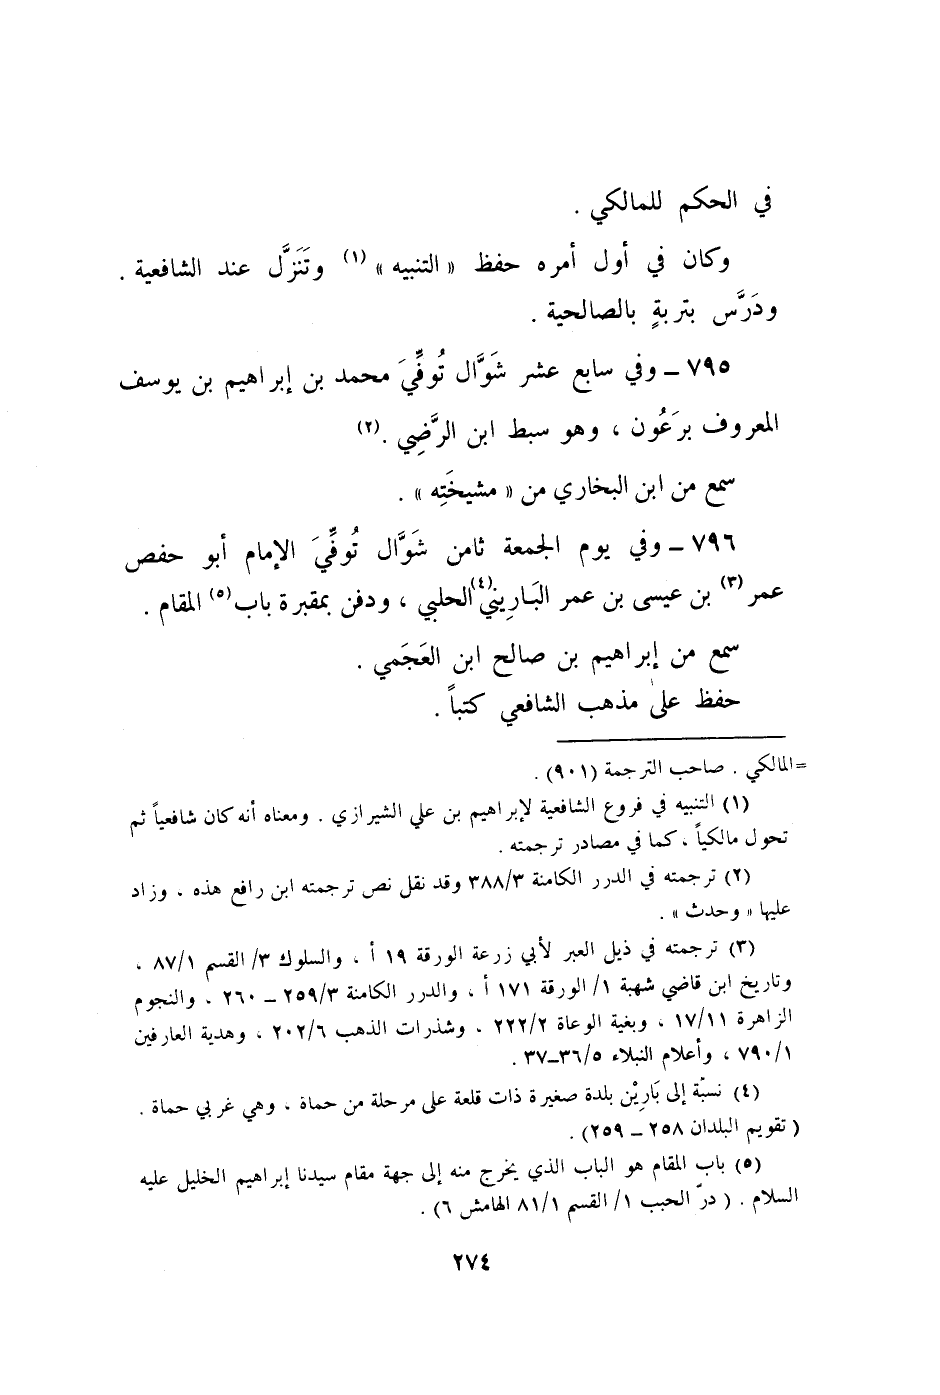 في الحكم للمالكي .
وكان في أول أمره حفظ « التنبيه » (١) وتَنَزَّل عند الشافعية .
ودَرَّس بتربةٍ بالصالحية .
٧٩٥ ـ وفي سابع عشر شَوَّال تُوفِّيَ محمد بن إبراهيم بن يوسف
المعروف برَعُون ، وهو سبط ابن الرَّضِي .(٢)
سمع من ابن البخاري من « مشيخَتِه » .
٧٩٦ ـ وفي يوم الجمعة ثامن شَوَّال تُوفِّيَ الإمام أبو حفص
عمر(٣) بن عيسى بن عمر البَارِيني(٤) الحلبي ، ودفن بمقبرة باب(٥) المقام .
سمع من إبراهيم بن صالح ابن العَجَمي .
حفظ على مذهب الشافعي كتباً .
=المالكي . صاحب الترجمة (٩٠١) .
(١) التنبيه في فروع الشافعية لإبراهيم بن علي الشيرازي . ومعناه أنه كان شافعياً ثم
تحول مالكياً ، كما في مصادر ترجمته .
(٢) ترجمته في الدرر الكامنة ٣٨٨/٣ وقد نقل نص ترجمته ابن رافع هذه ، وزاد
عليها « وحدث » .
(٣) ترجمته في ذيل العبر لأبي زرعة الورقة ١٩ أ ، والسلوك ٣/ القسم ٨٧/١ ،
وتاريخ ابن قاضي شهبة ١/ الورقة ١٧١ أ ، والدرر الكامنة ٢٥٩/٣ ـ ٢٦٠ ، والنجوم
الزاهرة ١٧/١١ ، وبغية الوعاة ٢٢٢/٢ ، وشذرات الذهب ٢٠٢/٦ ، وهدية العارفين
٧٩٠/١ ، وأعلام النبلاء ٣٦/٥ـ٣٧ .
(٤) نسبة إلى بَارِيْن بلدة صغيرة ذات قلعة على مرحلة من حماة ، وهي غربي حماة .
( تقويم البلدان ٢٥٨ ـ ٢٥٩) .
(٥) باب المقام هو الباب الذي يخرج منه إلى جهة مقام سيدنا إبراهيم الخليل عليه
السلام . ( درّ الحبب ١/ القسم ٨١/١ الهامش ٦) .
٢٧٤